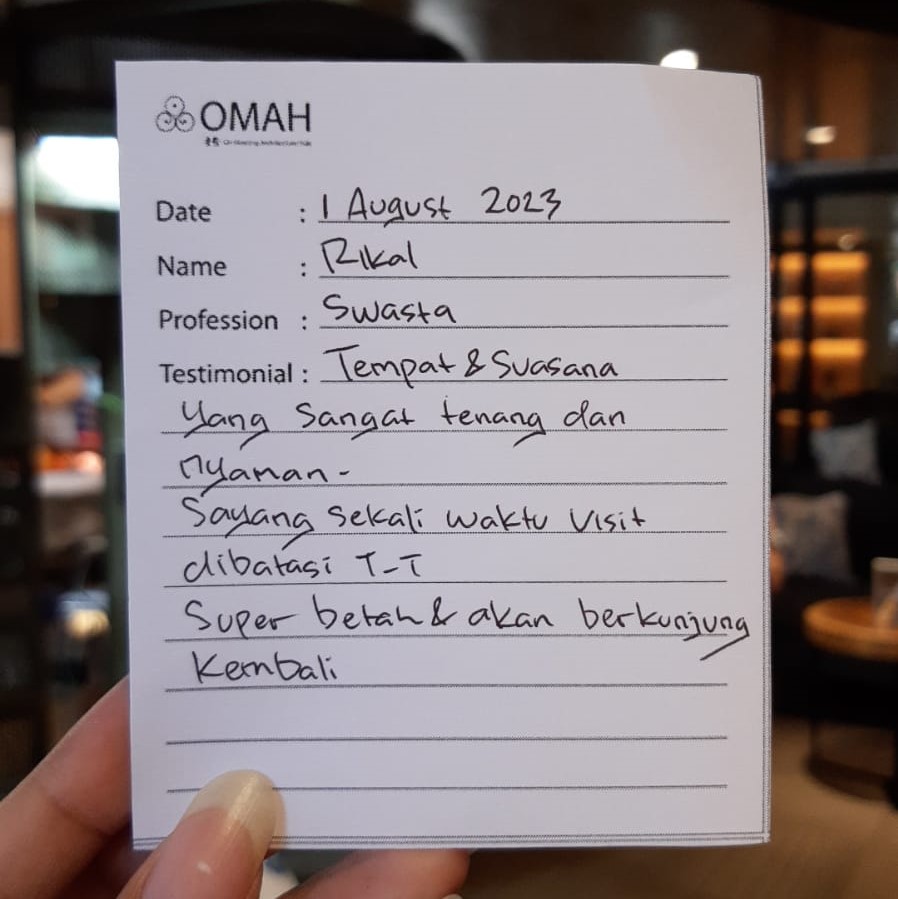 OMAH
Date : 1 August 2023
Name : Rikal
Profession : Swasta
Testimonial : Tempat & Suasana
yang sangat tenang dan
nyaman -
Sayang sekali waktu visit
dibatasi T_T
Super betah & akan berkunjung
kembali